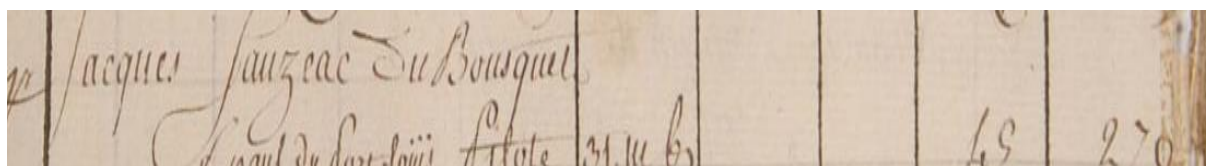 Jacques Sauzeac Du Bousquet
du Port Loüis Pilote 31 m bn 45 270